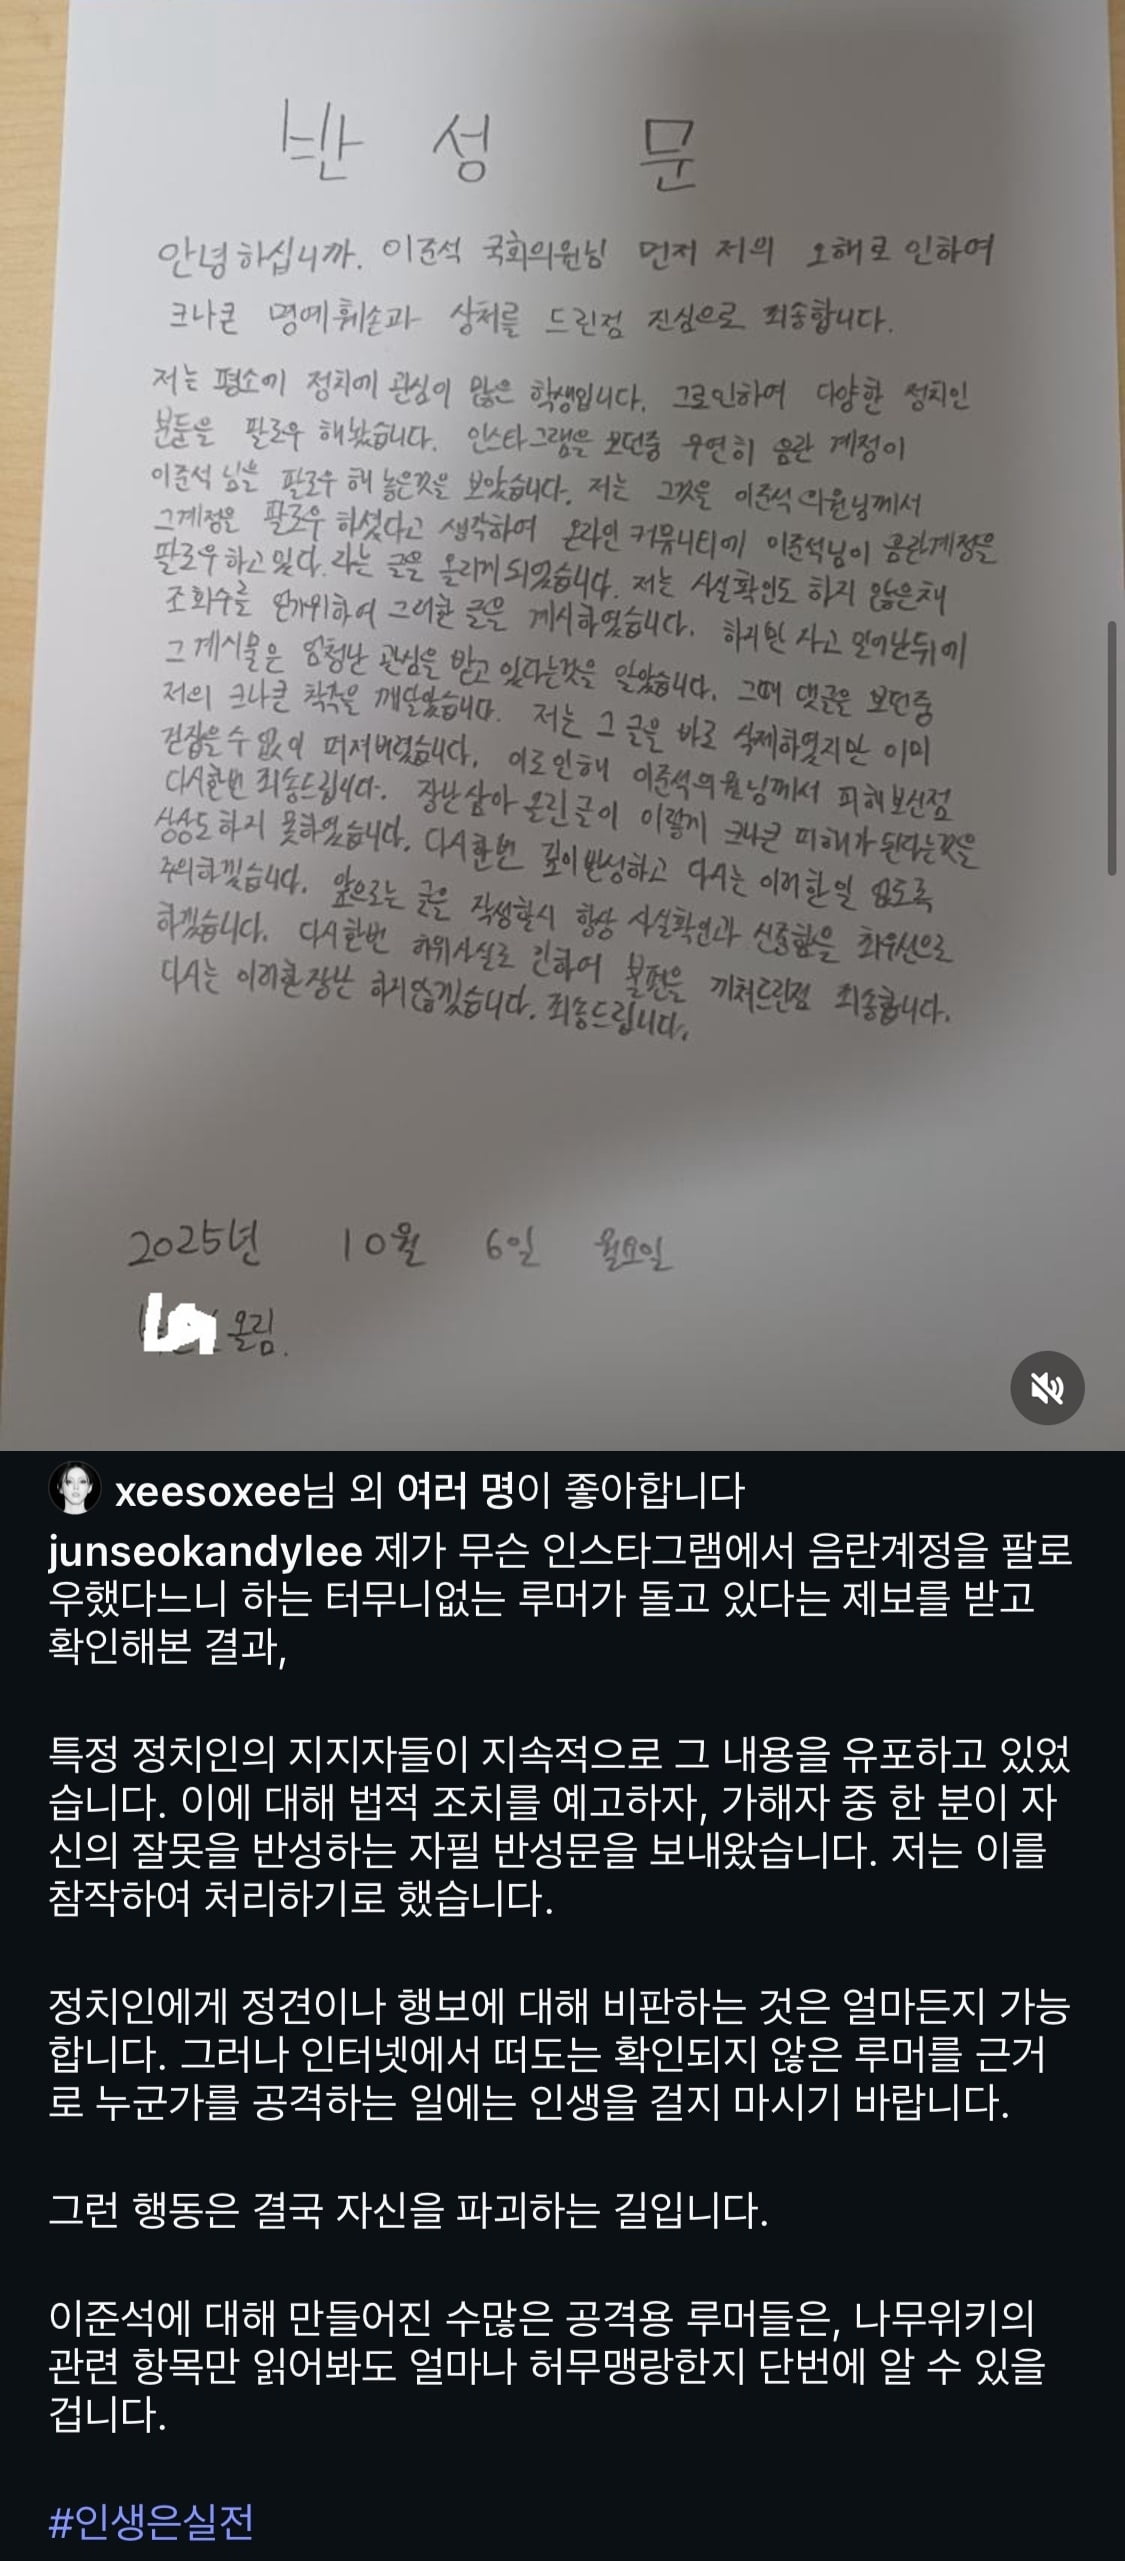 반 성 문
안녕하십니까. 이준석 국회의원님 먼저 저의 오해로 인하여
크나큰 명예훼손과 상처를 드린점 진심으로 죄송합니다.
저는 평소에 정치에 관심이 많은 학생입니다. 그로인하여 다양한 정치인
분들을 팔로우 해놨습니다. 인스타그램을 보던중 우연히 음란 계정이
이준석 님을 팔로우 해 놓은것을 보았습니다. 저는 그것을 이준석 의원님께서
그계정을 팔로우 하셨다고 생각하여 온라인 커뮤니티에 이준석님이 음란계정을
팔로우하고 있다. 라는 글을 올리게 되었습니다. 저는 사실확인도 하지 않은채
조회수를 위하여 그러한 글을 게시하였습니다. 하지만 자고 일어난뒤에
그 게시물은 엄청난 관심을 받고 있다는것을 알았습니다. 그때 댓글을 보던중
저의 크나큰 착각을 깨달았습니다. 저는 그 글을 바로 삭제하였지만 이미
걷잡을수 없이 퍼져버렸습니다. 이로인해 이준석의원님께서 피해보신점
다시한번 죄송드립니다. 장난삼아 올린글이 이렇게 크나큰 피해가 된다는것을
상상도 하지 못하였습니다. 다시한번 깊이반성하고 다시는 이러한일 없도록
주의하겠습니다. 앞으로는 글을 작성할시 항상 사실확인과 신중함을 최우선으로
하겠습니다. 다시한번 허위사실로 인하여 불편을 끼쳐드린점 죄송합니다.
다시는 이러한장난 하지않겠습니다. 죄송드립니다.
2025년 10월 6일 월요일
올림.
xeesoxee님 외 여러 명이 좋아합니다
junseokandylee 제가 무슨 인스타그램에서 음란계정을 팔로
우했다느니 하는 터무니없는 루머가 돌고 있다는 제보를 받고
확인해본 결과,
특정 정치인의 지지자들이 지속적으로 그 내용을 유포하고 있었
습니다. 이에 대해 법적 조치를 예고하자, 가해자 중 한 분이 자
신의 잘못을 반성하는 자필 반성문을 보내왔습니다. 저는 이를
참작하여 처리하기로 했습니다.
정치인에게 정견이나 행보에 대해 비판하는 것은 얼마든지 가능
합니다. 그러나 인터넷에서 떠도는 확인되지 않은 루머를 근거
로 누군가를 공격하는 일에는 인생을 걸지 마시기 바랍니다.
그런 행동은 결국 자신을 파괴하는 길입니다.
이준석에 대해 만들어진 수많은 공격용 루머들은, 나무위키의
관련 항목만 읽어봐도 얼마나 허무맹랑한지 단번에 알 수 있을
겁니다.
#인생은실전